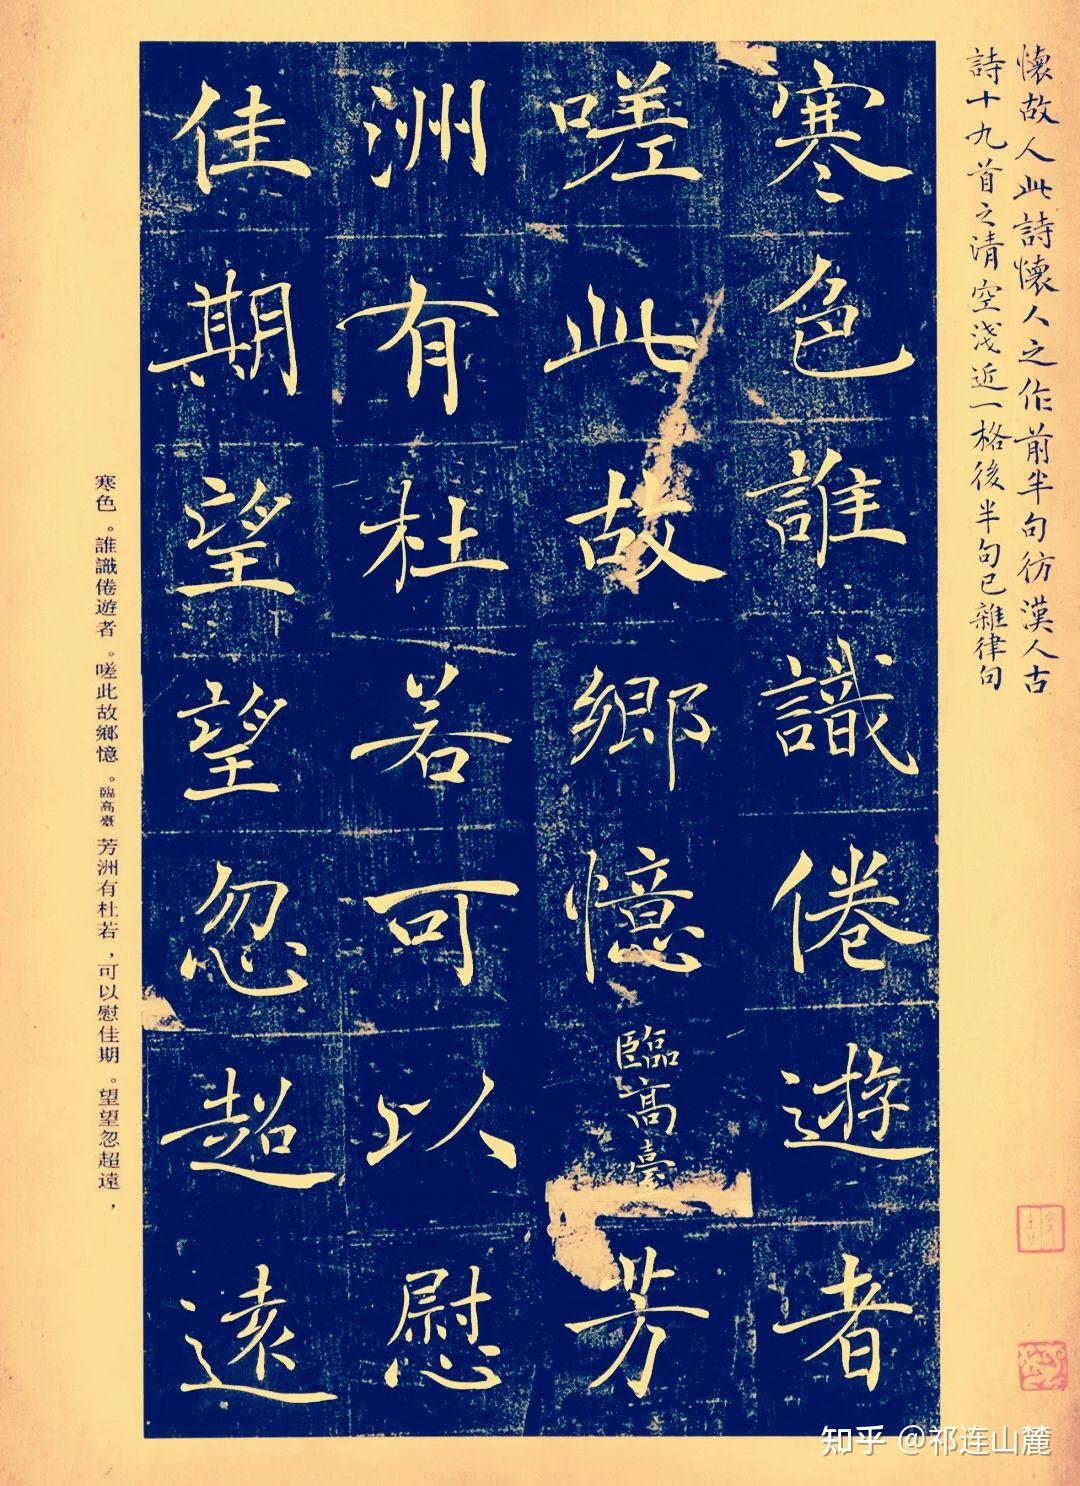 懷故人此詩懷人之作前半句彷漢人古
詩十九首之清空淺近一格後半句已雜律句
寒色誰識倦遊者
嗟此故鄉憶臨高臺芳
洲有杜若可以慰
佳期望望忽超遠
寒色。誰識倦遊者。嗟此故鄉憶。臨高臺芳洲有杜若，可以慰佳期。望望忽超遠，
知乎 @祁连山麓